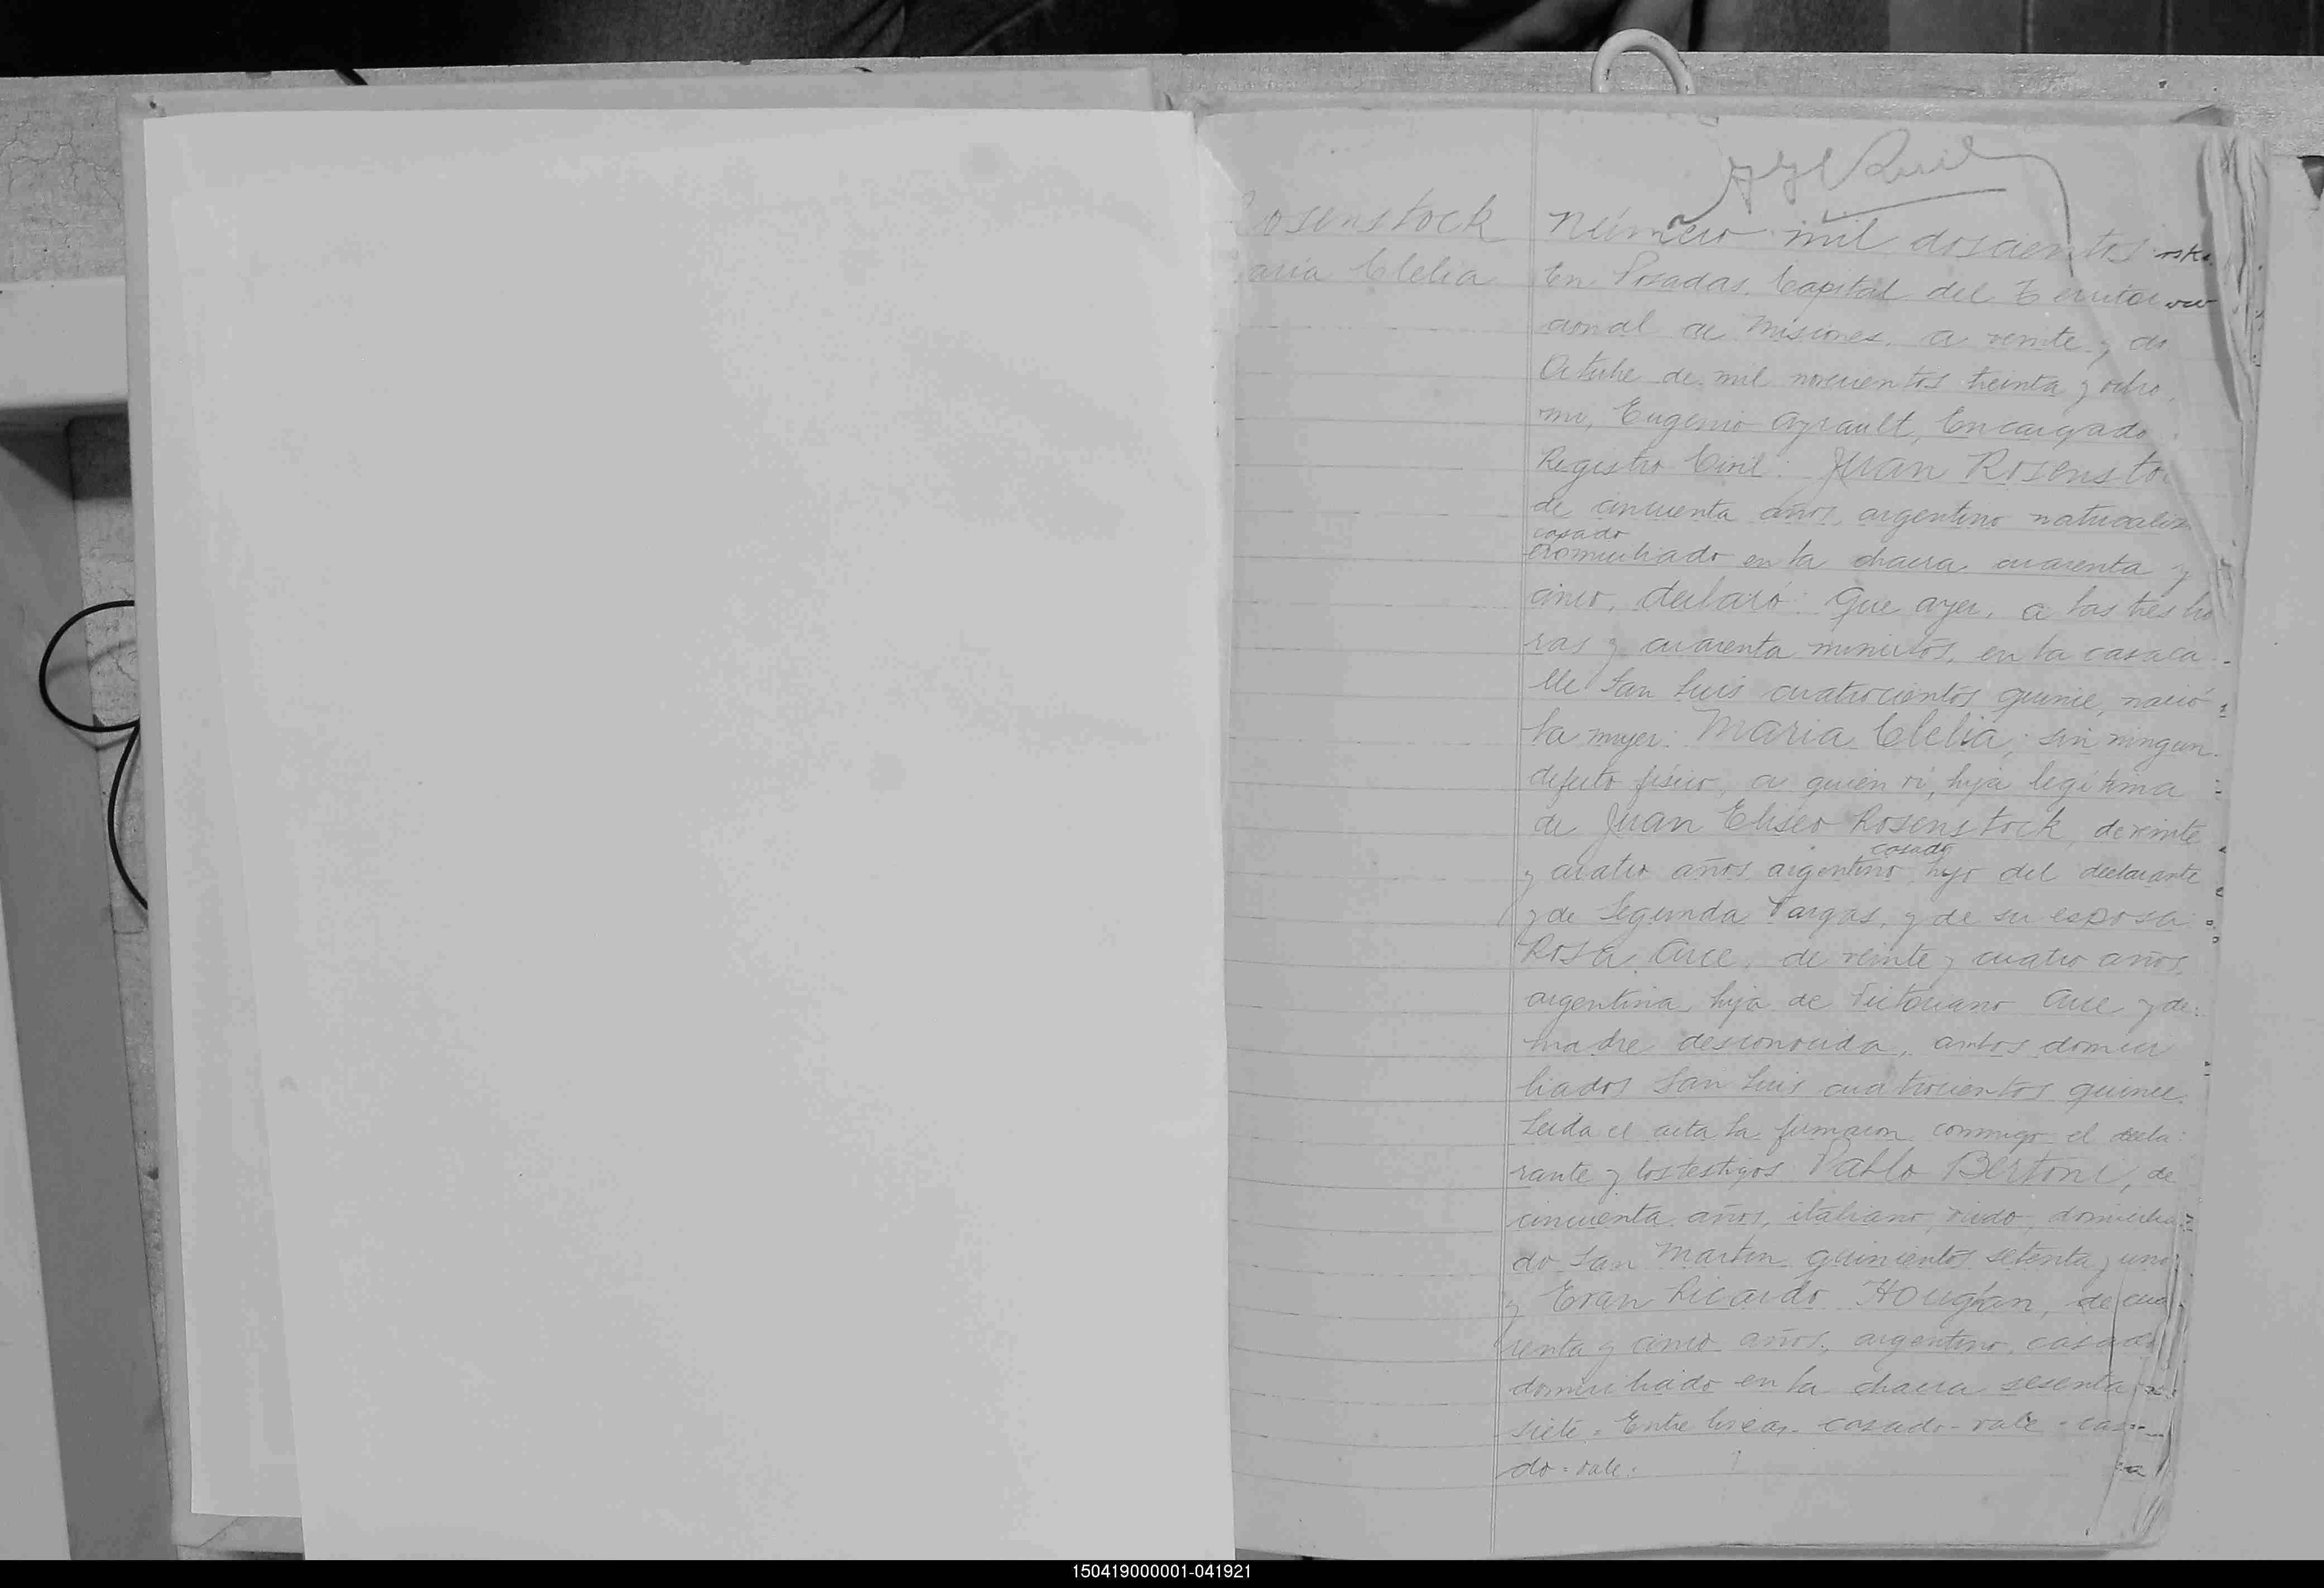 Rosenstock
aria Clelia
Número mil doscientos
En Posadas, Capital del Territor
cional de Misiones, a veinte y
Octubre de mil novecientos treinta y ocho,
mi, Eugenio Ayrault, Encargado
Registro Civil: Juan Rosensto
de cincuenta años, argentino naturaliz
casado
domiciliado en la chacra cuarenta y
cinco, declaró: Que ayer, a las tres ho
ras y cuarenta minutos, en la casa ca
lle San Luis cuatrocientos quince, nació
la mujer: Maria Clelia; sin ningun
defecto físico, a quien vi, hija legítima
de Juan Eliseo Rosenstock, de veinte
casado
y cuatro años argentino, hijo del declarante
y de Segunda Vargas, y de su esposa
Rosa Arce, de veinte y cuatro años,
argentina, hija de Victoriano Arce y de
madre desconocida, ambos domici
liados San Luis cuatrocientos quince.
Leida el acta la firmaron conmigo el decla
rante y los testigos Pablo Bertoni, de
cincuenta años, italiano, viudo, domicilia
do San Martin quinientos setenta y uno
y Evan Ricardo Hougham, de cua
renta y cinco años, argentino, casado
domiciliado en la chacra sesenta
siete = Entre lineas - casado - vale - casa
do = vale.
150419000001-041921